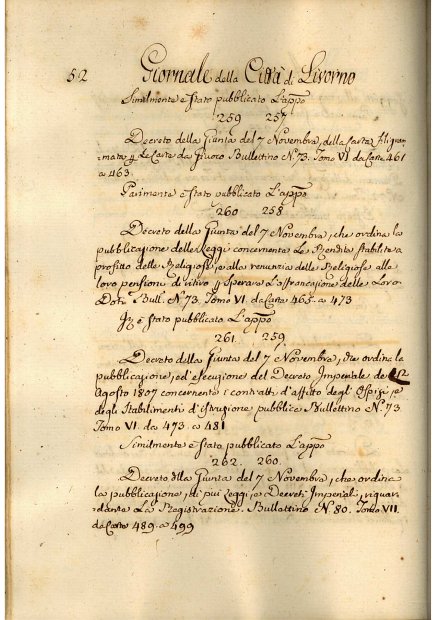 52 Giornale della Città di Livorno
Similmente è stato pubblicato L'appo
259 257
Decreto della Giunta del 7 Novembra, della Carta
mata Le Carte da Giuoco Bullettino N.° 73. Tomo VI da Carte 461
a 463
Parimente è stato pubblicato L'appo
260 258
Decreto della Giunta del 7 Novembra, che ordina la
pubblicazione delle Leggi concernente Le Rendite stabilite a
profitto delle Religiose, e alla renunzia delle Religiose alla
loro pensioni di vitivo L'affrancazione delle Loro
Doti Bull. N.° 73. Tomo VI. da Carte 465. a 473
è stato pubblicato L'appo
261. 259
Decreto della Giunta del 7 Novembra, che ordina la
pubblicazione, ed' esecuzione del Decreto Imperiale de 12
Agosto 1807 concernente i contratti d'affitto degl' Ospizi, e
degl Stabilimenti d'istruzione pubblica Bullettino N.° 73
Tomo VI. da 473. a 481
Similmente è stato pubblicato L'appo
262. 260.
Decreto della Giunta del 7 Novembra, che ordina
la pubblicazione, di più Leggi, e Decreti Imperial, riguar-
dante La Registrazione. Bullattino N. 80. Tomo VII.
da Carte 489. a 499